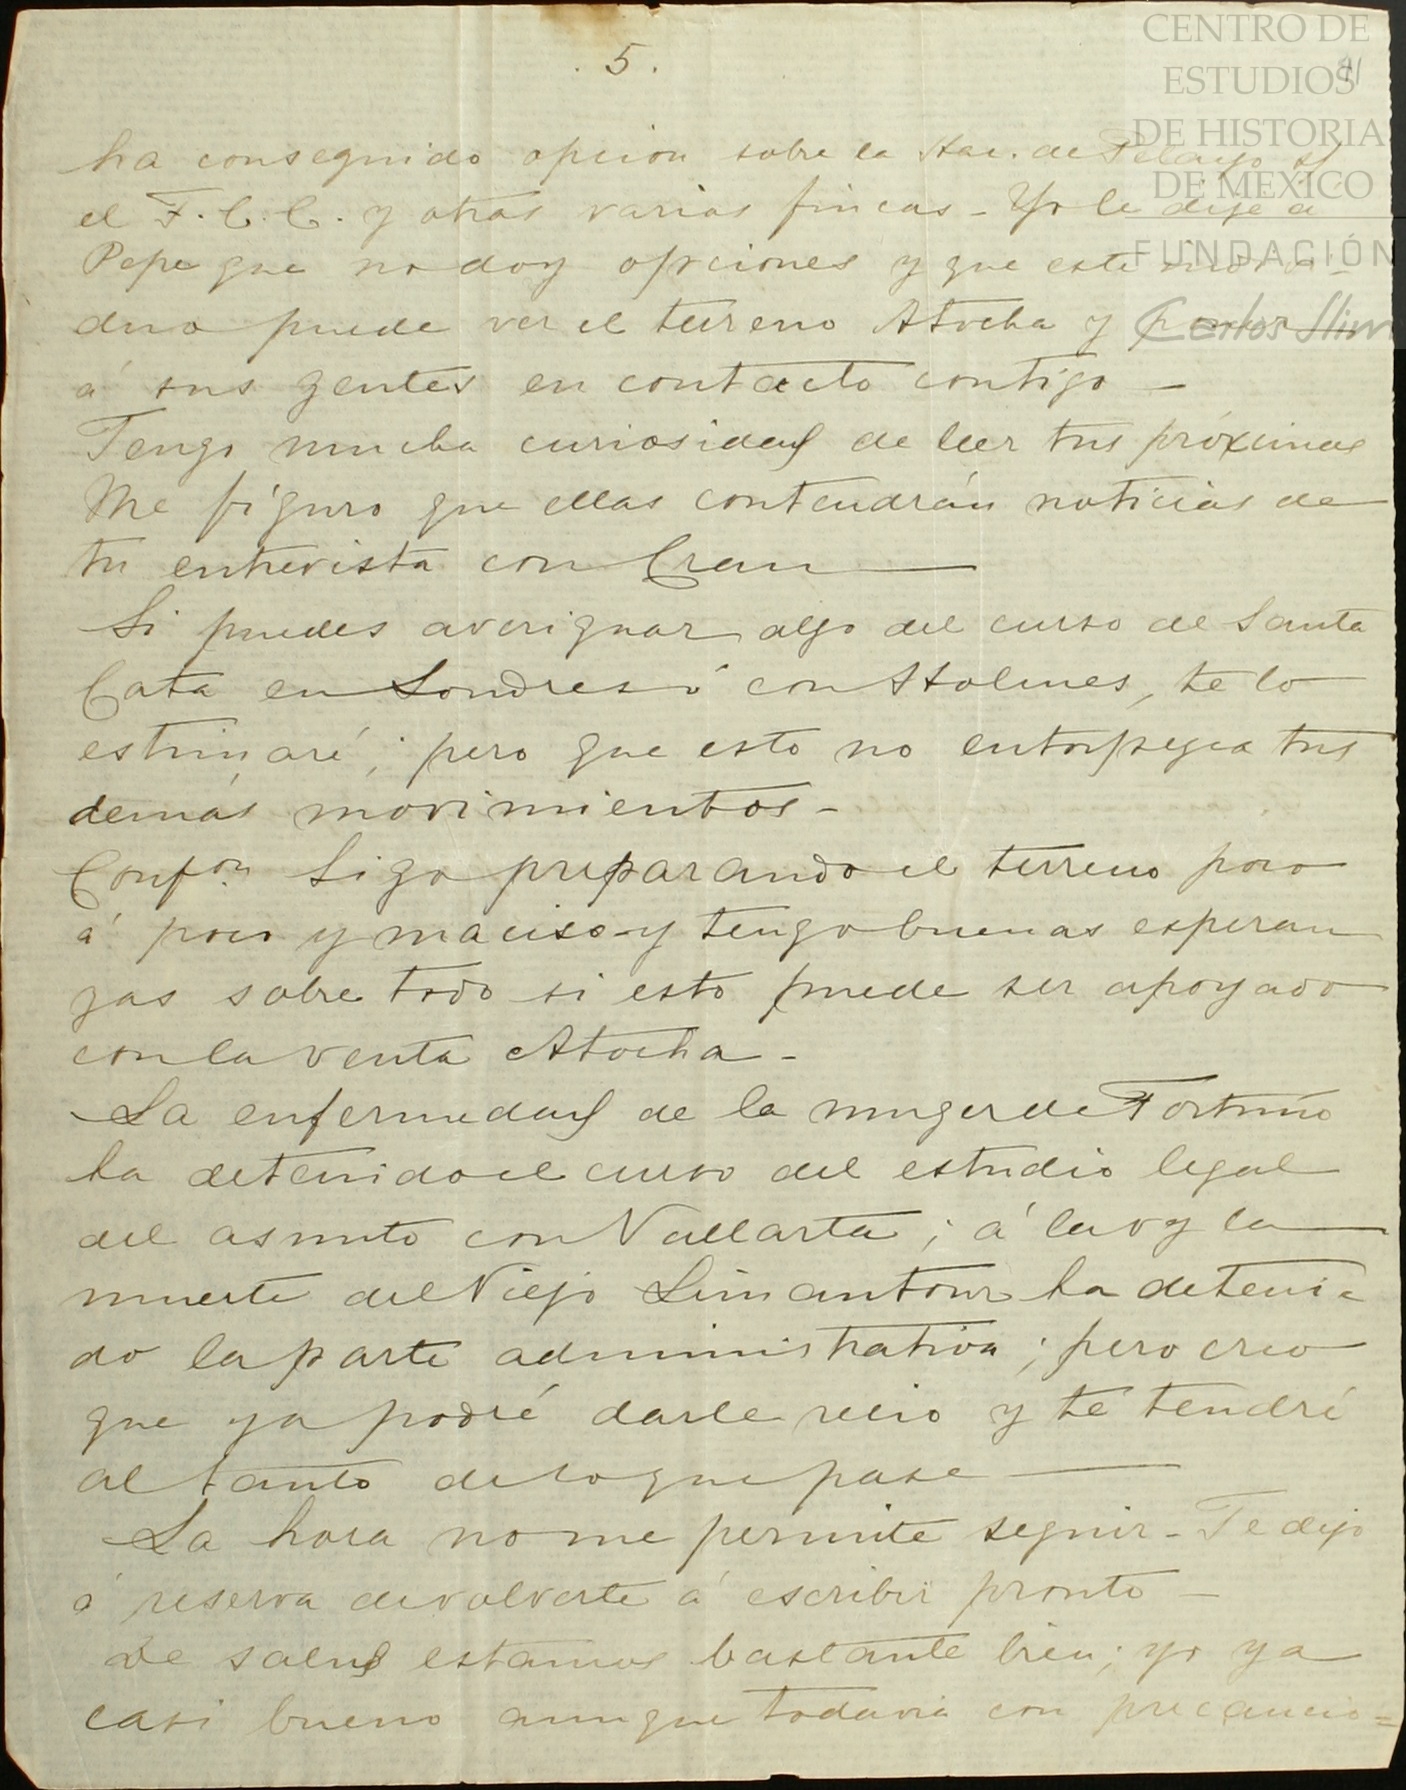 CENTRO DE
ESTUDIOS
DE HISTORIA
DE MEXICO
FUNDACIÓN
Carlos Slim
. 5 .
ha conseguido opcion sobre la Hac. de Pelayo y
el F. C. C. y otras varias fincas - Yo le dije a
Pepe que no doy opciones y que este indivi-
duo puede ver el terreno Atocha y poner
á sus gentes en contacto contigo -
Tengo mucha curiosidad de leer tus próximas
Me figuro que ellas contendrán noticias de
tu entrevista con Cran
Si puedes averiguar algo del curso de Santa
Cata en Londres ó con Holmes, te lo
estimaré; pero que esto no entorpezca tus
demás movimientos -
Confon. Sigo preparando el terreno poco
á poco y maciso y tengo buenas esperan
zas sobre todo si esto puede ser apoyado
con la venta Atocha -
La enfermedad de la muger de Fortuño
ha detenido el curso del estudio legal
del asunto con Vallarta; á la vz la
muerte del Viejo Limantour ha deteni-
do la parte administrativa; pero creo
que ya podré darle recio y te tendré
al tanto de lo que pase
La hora no me permite seguir - Te dejo
á reserva de volverte á escribir pronto -
De salud estamos bastante bien; yo ya
casi bueno aunque todavia con precaucio=